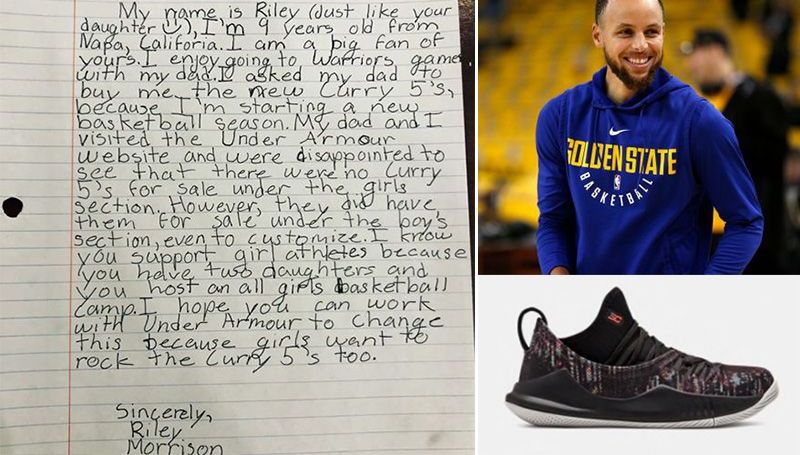 My name is Riley (Just like your
daughter), I'm 9 years old from
Napa, Califoria. I am a big fan of
yours. I enjoy going to Warriors game
with my dad. I asked my dad to
buy me the new Curry 5's,
because I'm starting a new
basketball season. My dad and I
visited the Under Armour
website and were disappointed to
see that there were no Curry
5's for sale under the girls
section. However, they did have
them for sale under the boy's
section, even to customize. I know
you support girl athletes because
you have two daughters and
you host an all girls basketball
camp. I hope you can work
with Under Armour to change
this because girls want to
rock the Curry 5's too.
Sincerely,
Riley
Morrison
GOLDEN STATE
BASKETBALL